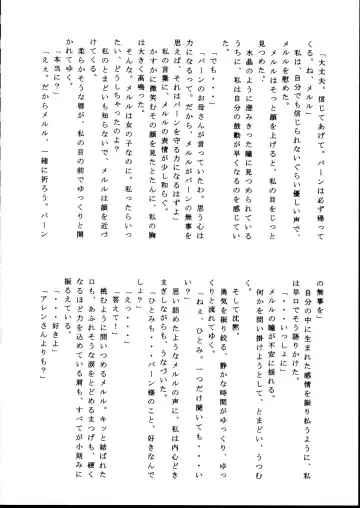 「大丈夫。信じてあげて。バーンは必ず帰って
くる。ね、メルル」
　私は、自分でも信じられないぐらい優しい声で、
メルルを慰めた。
　メルルはそっと顔を上げると、私の目をじっと
見つめた。
　水晶のように澄みきった瞳に見つめられている
うちに、私は自分の鼓動が早くなるのを感じてい
た。
「でも・・・」
「バーンのお母さんが言っていたわ。思う心は
力になるって。だから、メルルがバーンの無事を
思えば、それはバーンを守る力になるはずよ」
　私の言葉に、メルルの表情が少し和らぐ。
　かすかに微笑むその顔を見たとたんに、私の胸
は大きく高鳴った。
　そんな。メルルは女の子なのに。私ったらいっ
たい、どうしちゃったのよ？
　私のとまどいも知らないで、メルルは顔を近づ
けてくる。
　柔らかそうな唇が、私の目の前でゆっくりと開
かれてゆく。
「本当に？」
「ええ。だからメルル、一緒に祈ろう。バーン
の無事を」
　自分の中に生まれた感情を振り払うように、私
は早口でそう語りかけた。
「・・・・いっしょに」
　メルルの瞳が不安に揺れる。
　何かを問い掛けようとして、とまどい、うつむ
く。
　そして沈黙。
　勇気を振り絞る、静かな時間がゆっくり、ゆっ
くりと流れてゆく。
「ねえ、ひとみ。一つだけ聞いても・・・い
い？」
　思い詰めたようなメルルの声に、私は内心どき
まぎしながらも、うなづいた。
「ひとみも・・・バーン様のこと、好きなんで
しょ？」
「えっ・・・」
「答えて！」
　挑むように問いつめるメルル。キッと結ばれた
口も、あふれそうな涙をとどめるまつげも、硬く
なるほど力を込めている肩も、すべてが小刻みに
振るえている。
「・・・・好きよ」
「アレンさんよりも？」